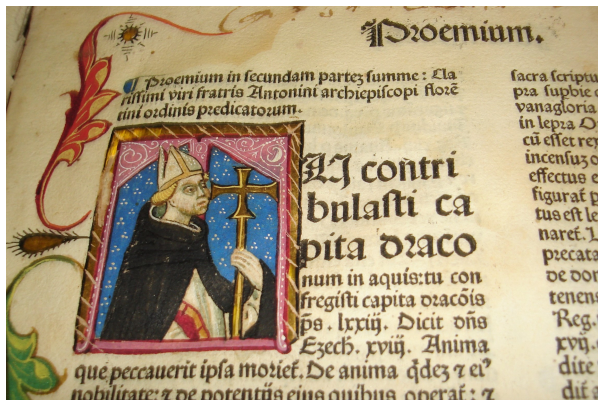 Proemium.
Proemium in secundam partez summe : Cla
rissimi viri fratris Antonini archiepiscopi florē
tini ordinis predicatorum.
U cōntri
bulasti ca
pita draco
num in aquis: tu con
fregisti capita dracōis
p̄s. lxxiij. Dicit dn̄s
Ezech. xviij. Anima
que peccauerit ipsa moriet̄. De anima q̄dez ⁊ ei⁹
nobilitate: ⁊ de potentijs eius quibus operat̄: ⁊
sacra scriptu
pra
vanagloria
in lepra
cū esset rex
incensuz
effectus e
figurat̄ p
tus est le
naret.
precata
de don
tenens
Reg.
xvij.
dite
dit